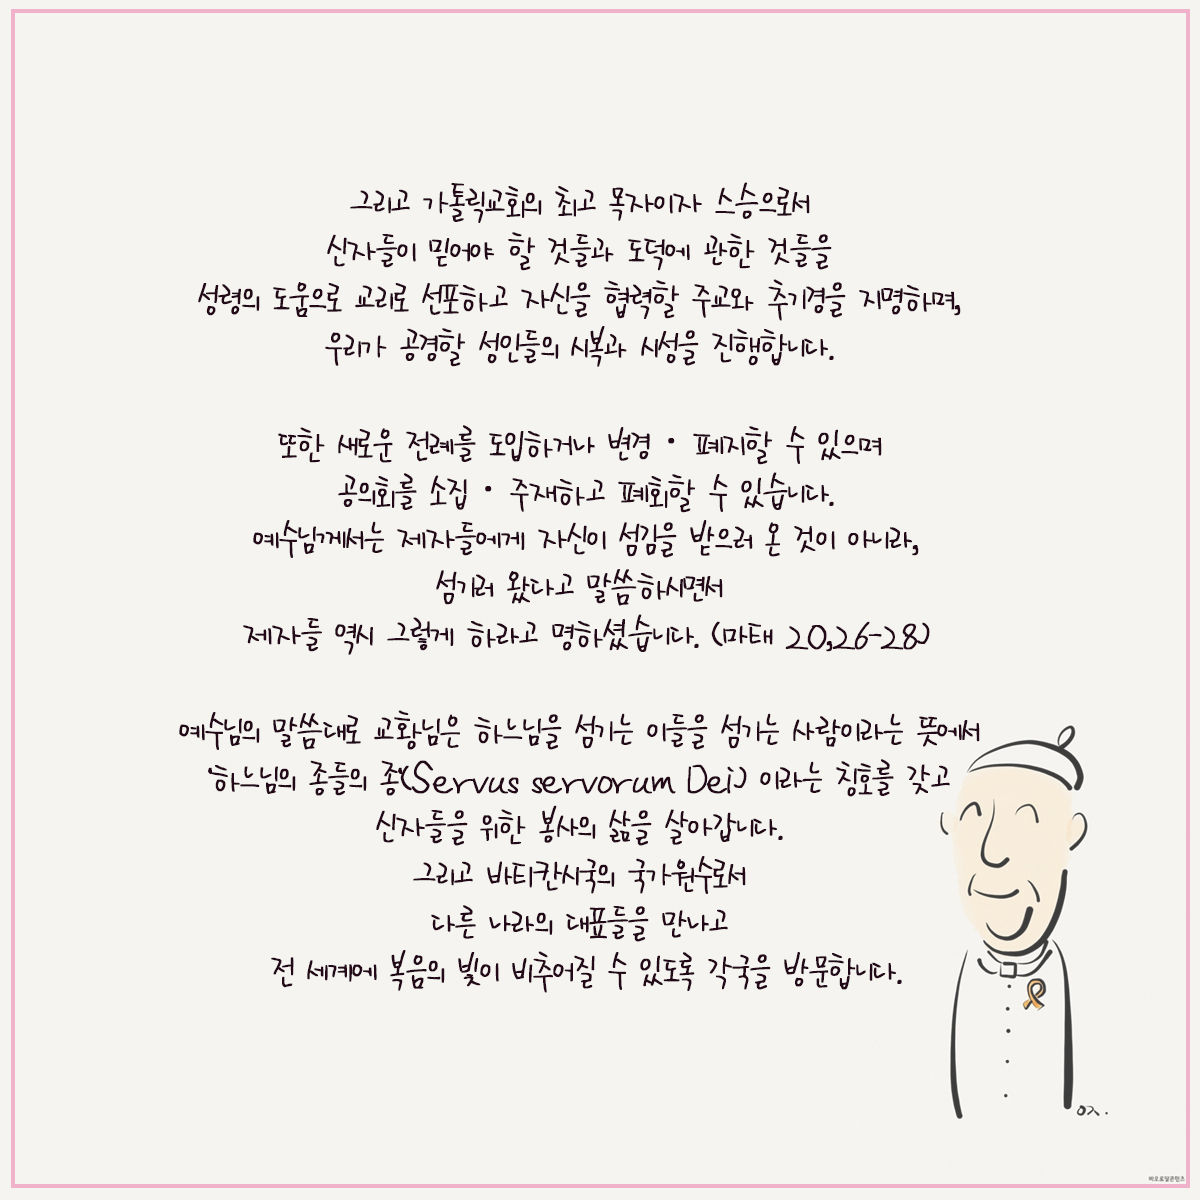 그리고 가톨릭교회의 최고 목자이자 스승으로서
신자들이 믿어야 할 것들과 도덕에 관한 것들을
성령의 도움으로 교리로 선포하고 자신을 협력할 주교와 추기경을 지명하며,
우리가 공경할 성인들의 시복과 시성을 진행합니다.
또한 새로운 전례를 도입하거나 변경 · 폐지할 수 있으며
공의회를 소집 · 주재하고 폐회할 수 있습니다.
예수님께서는 제자들에게 자신이 섬김을 받으러 온 것이 아니라,
섬기러 왔다고 말씀하시면서
제자들 역시 그렇게 하라고 명하셨습니다. (마태 20,26-28)
예수님의 말씀대로 교황님은 하느님을 섬기는 이들을 섬기는 사람이라는 뜻에서
'하느님의 종들의 종'(Servus servorum Dei) 이라는 칭호를 갖고
신자들을 위한 봉사의 삶을 살아갑니다.
그리고 바티칸시국의 국가원수로서
다른 나라의 대표들을 만나고
전 세계에 복음의 빛이 비추어질 수 있도록 각국을 방문합니다.
바오로딸콘텐츠